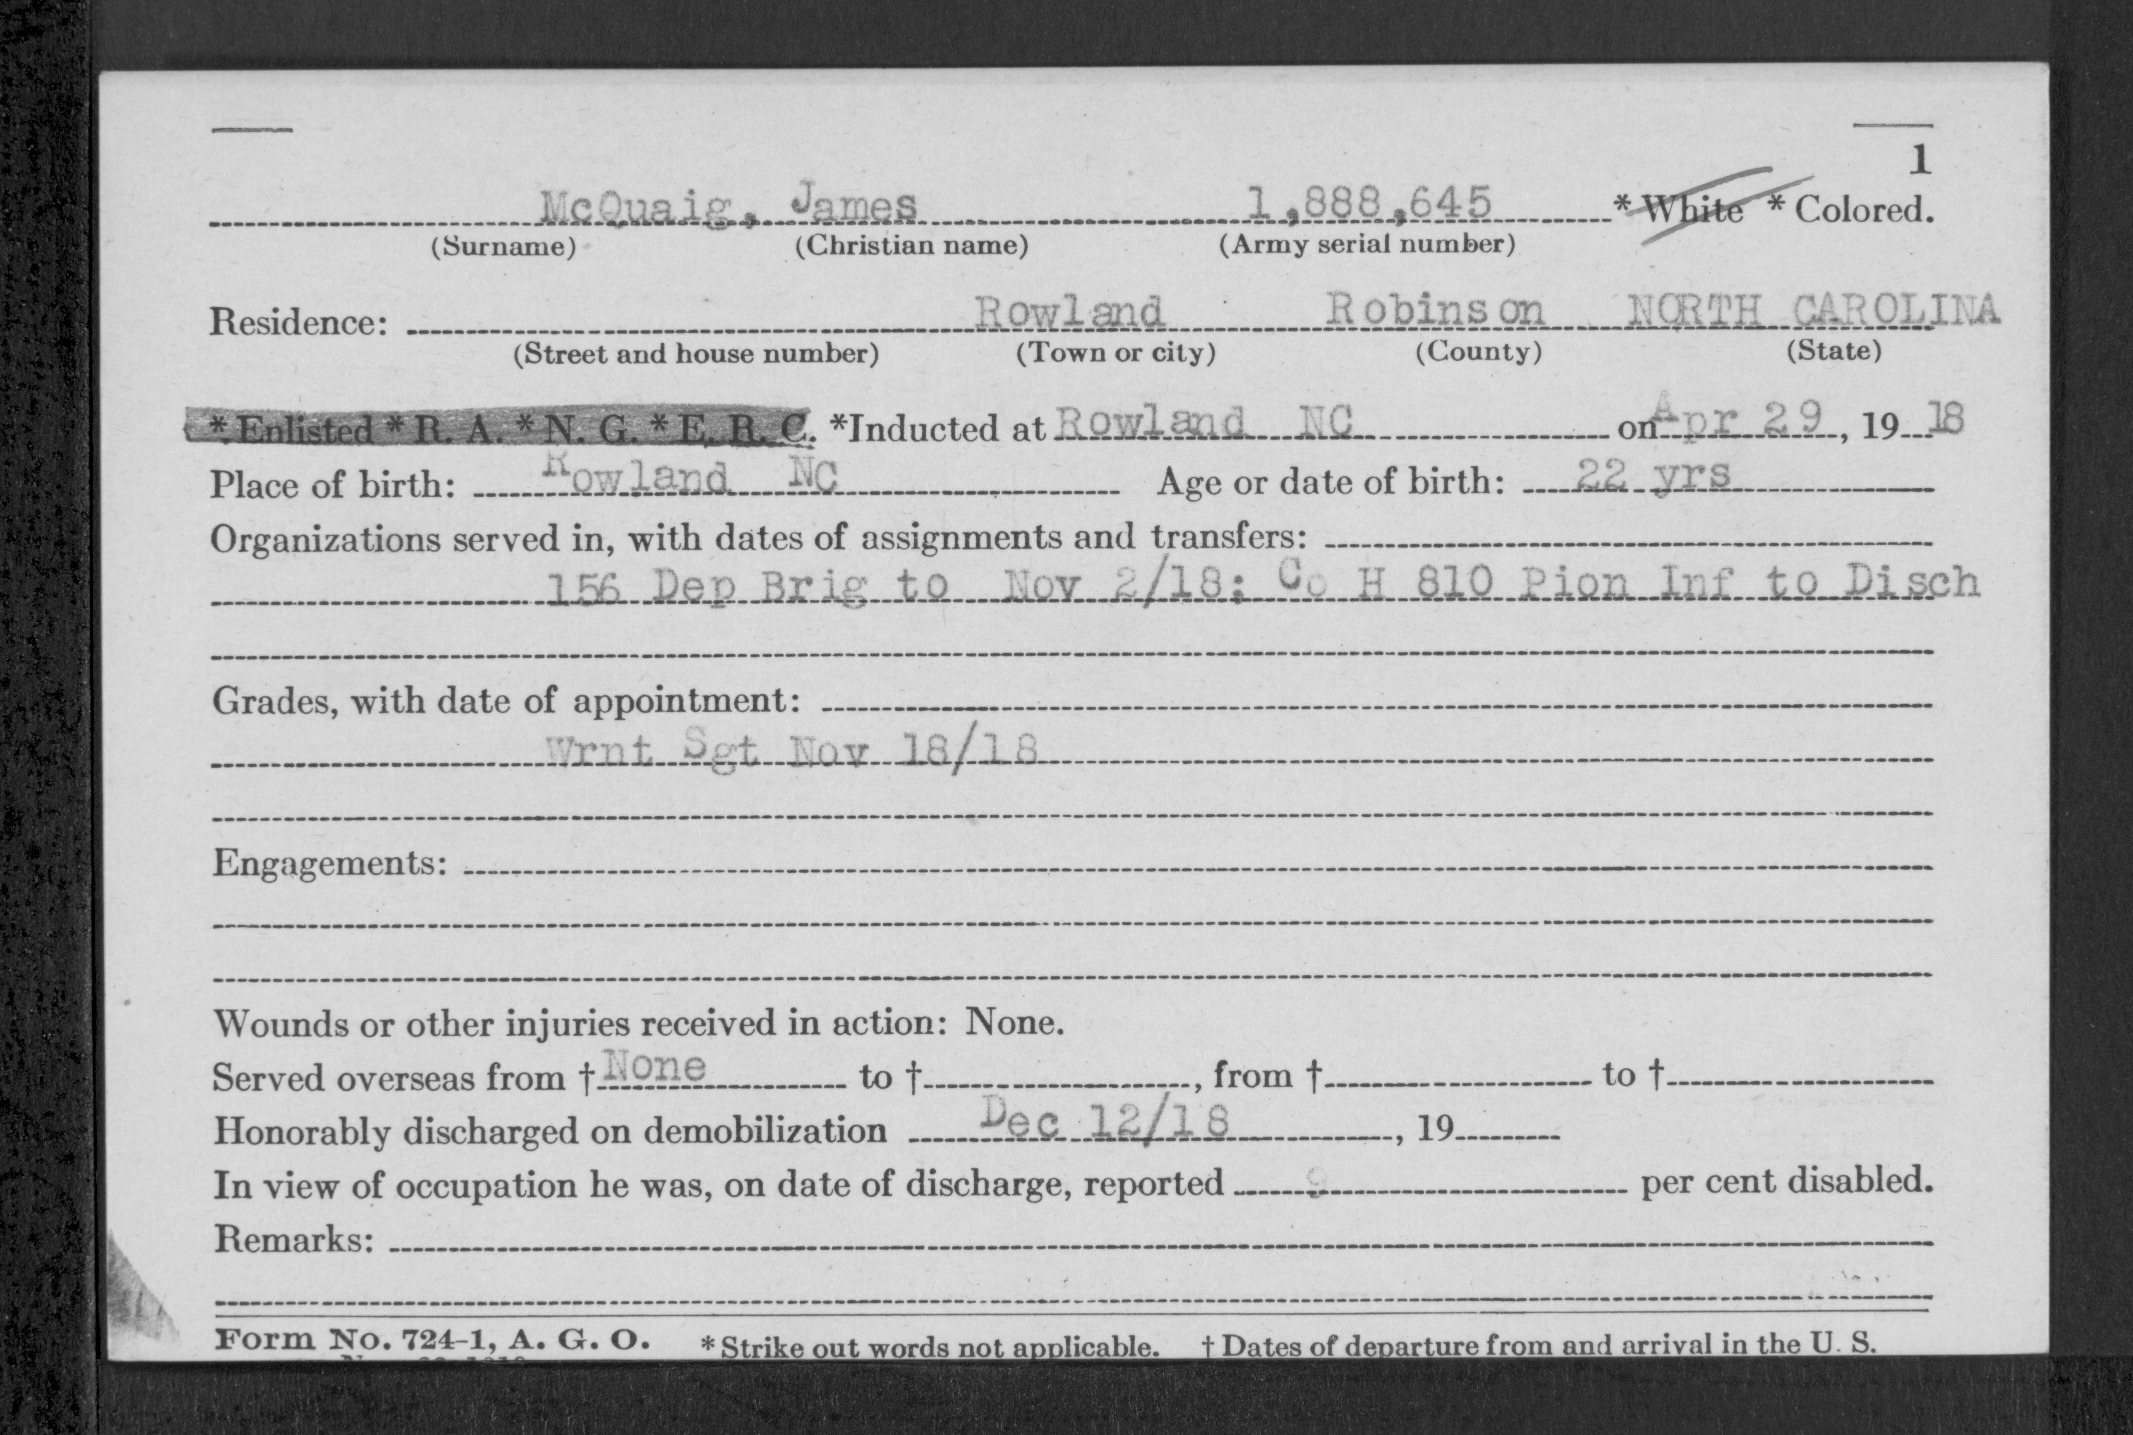 1
McQuaig, James 1,888,645 * White * Colored.
(Surname) (Christian name) (Army serial number)
Residence: Rowland Robinson NORTH CAROLINA
(Street and house number) (Town or city) (County) (State)
* Enlisted * R. A. * N. G. * E. R. C. *Inducted at Rowland NC on Apr 29, 19 18
Place of birth: Rowland NC Age or date of birth: 22 yrs
Organizations served in, with dates of assignments and transfers:
156 Dep Brig to Nov 2/18; Co H 810 Pion Inf to Disch
Grades, with date of appointment:
Wrnt Sgt Nov 18/18
Engagements:
Wounds or other injuries received in action: None.
Served overseas from † None to †, from † to †
Honorably discharged on demobilization Dec 12/18, 19
In view of occupation he was, on date of discharge, reported per cent disabled.
Remarks:
Form No. 724-1, A. G. O. * Strike out words not applicable. † Dates of departure from and arrival in the U. S.